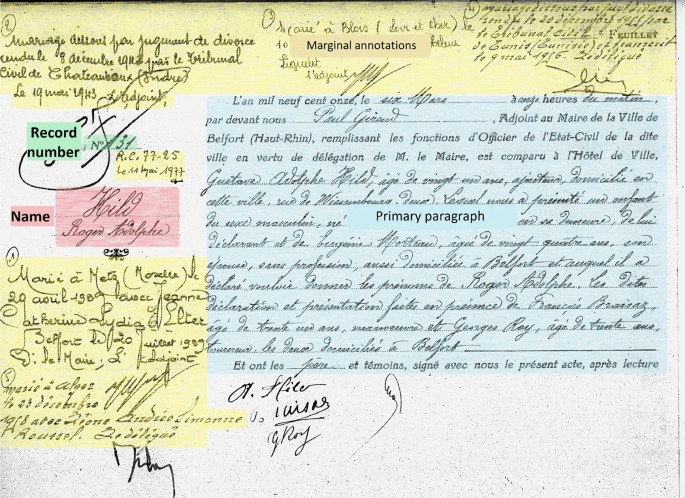 ②
mariage dissous par jugement de divorce
rendu le 8 décembre 1942 par le Tribunal
Civil de Chateauroux (Indre)
Le 19 mai 1943 L'adjoint,
③
Marié à Blois (Loir et Cher)
10
Marginal annotations
Liquelet
l'adjoint
④
mariage dissous par jugt divorce
rendu le 20 décembre
le Tribunal Civil FEUILLET
de Tunis (Tunisie)
9 mai 1956. Le délégué
Record
number
N° 131
R.C. 77-25
Le 11 mai 1977
Name
Hild
Roger Adolphe
L'an mil neuf cent onze, le six Mars à onze heures du matin,
par devant nous Paul Giraud, Adjoint au Maire de la Ville de
Belfort (Haut-Rhin), remplissant les fonctions d'Officier de l'Etat-Civil de la dite
ville en vertu de délégation de M. le Maire, est comparu à l'Hôtel de Ville,
Gustave Adolphe Hild, âgé de vingt un ans, ajusteur, domicilié en
cette ville, rue de Wissembourg, deux. Lequel nous a présenté un enfant
du sexe masculin, né Primary paragraph en sa demeure, de lui
déclarant et de Eugénie Morteau, âgée de vingt quatre ans, son
épouse, sans profession, aussi domiciliée à Belfort et auquel il a
déclaré vouloir donner les prénoms de Roger Adolphe. Les dites
déclaration et présentation faites en présence de François
âgé de trente un ans, manoeuvre et Georges Roy, âgé de trente ans,
tourneur, les deux domiciliés à Belfort
Et ont les père et témoins, signé avec nous le présent acte, après lecture
①
Marié à Metz (Moselle) le
29 avril 1939 avec Jeanne
Catherine Lydia Elter
Belfort le 20 juillet 1939
P. le Maire: L'adjoint
⑤
marié à
le 23 décembre
avec Léone Andrée Simonne
Roussel. Le délégué
A. Hild
G Roy